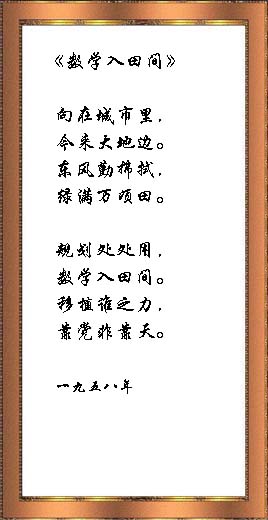 《数学入田间》
向在城市里，
今来大地边。
东风勤拂拭，
绿满万顷田。
规划处处用，
数学入田间。
移植谁之力，
靠党非靠天。
一九五八年